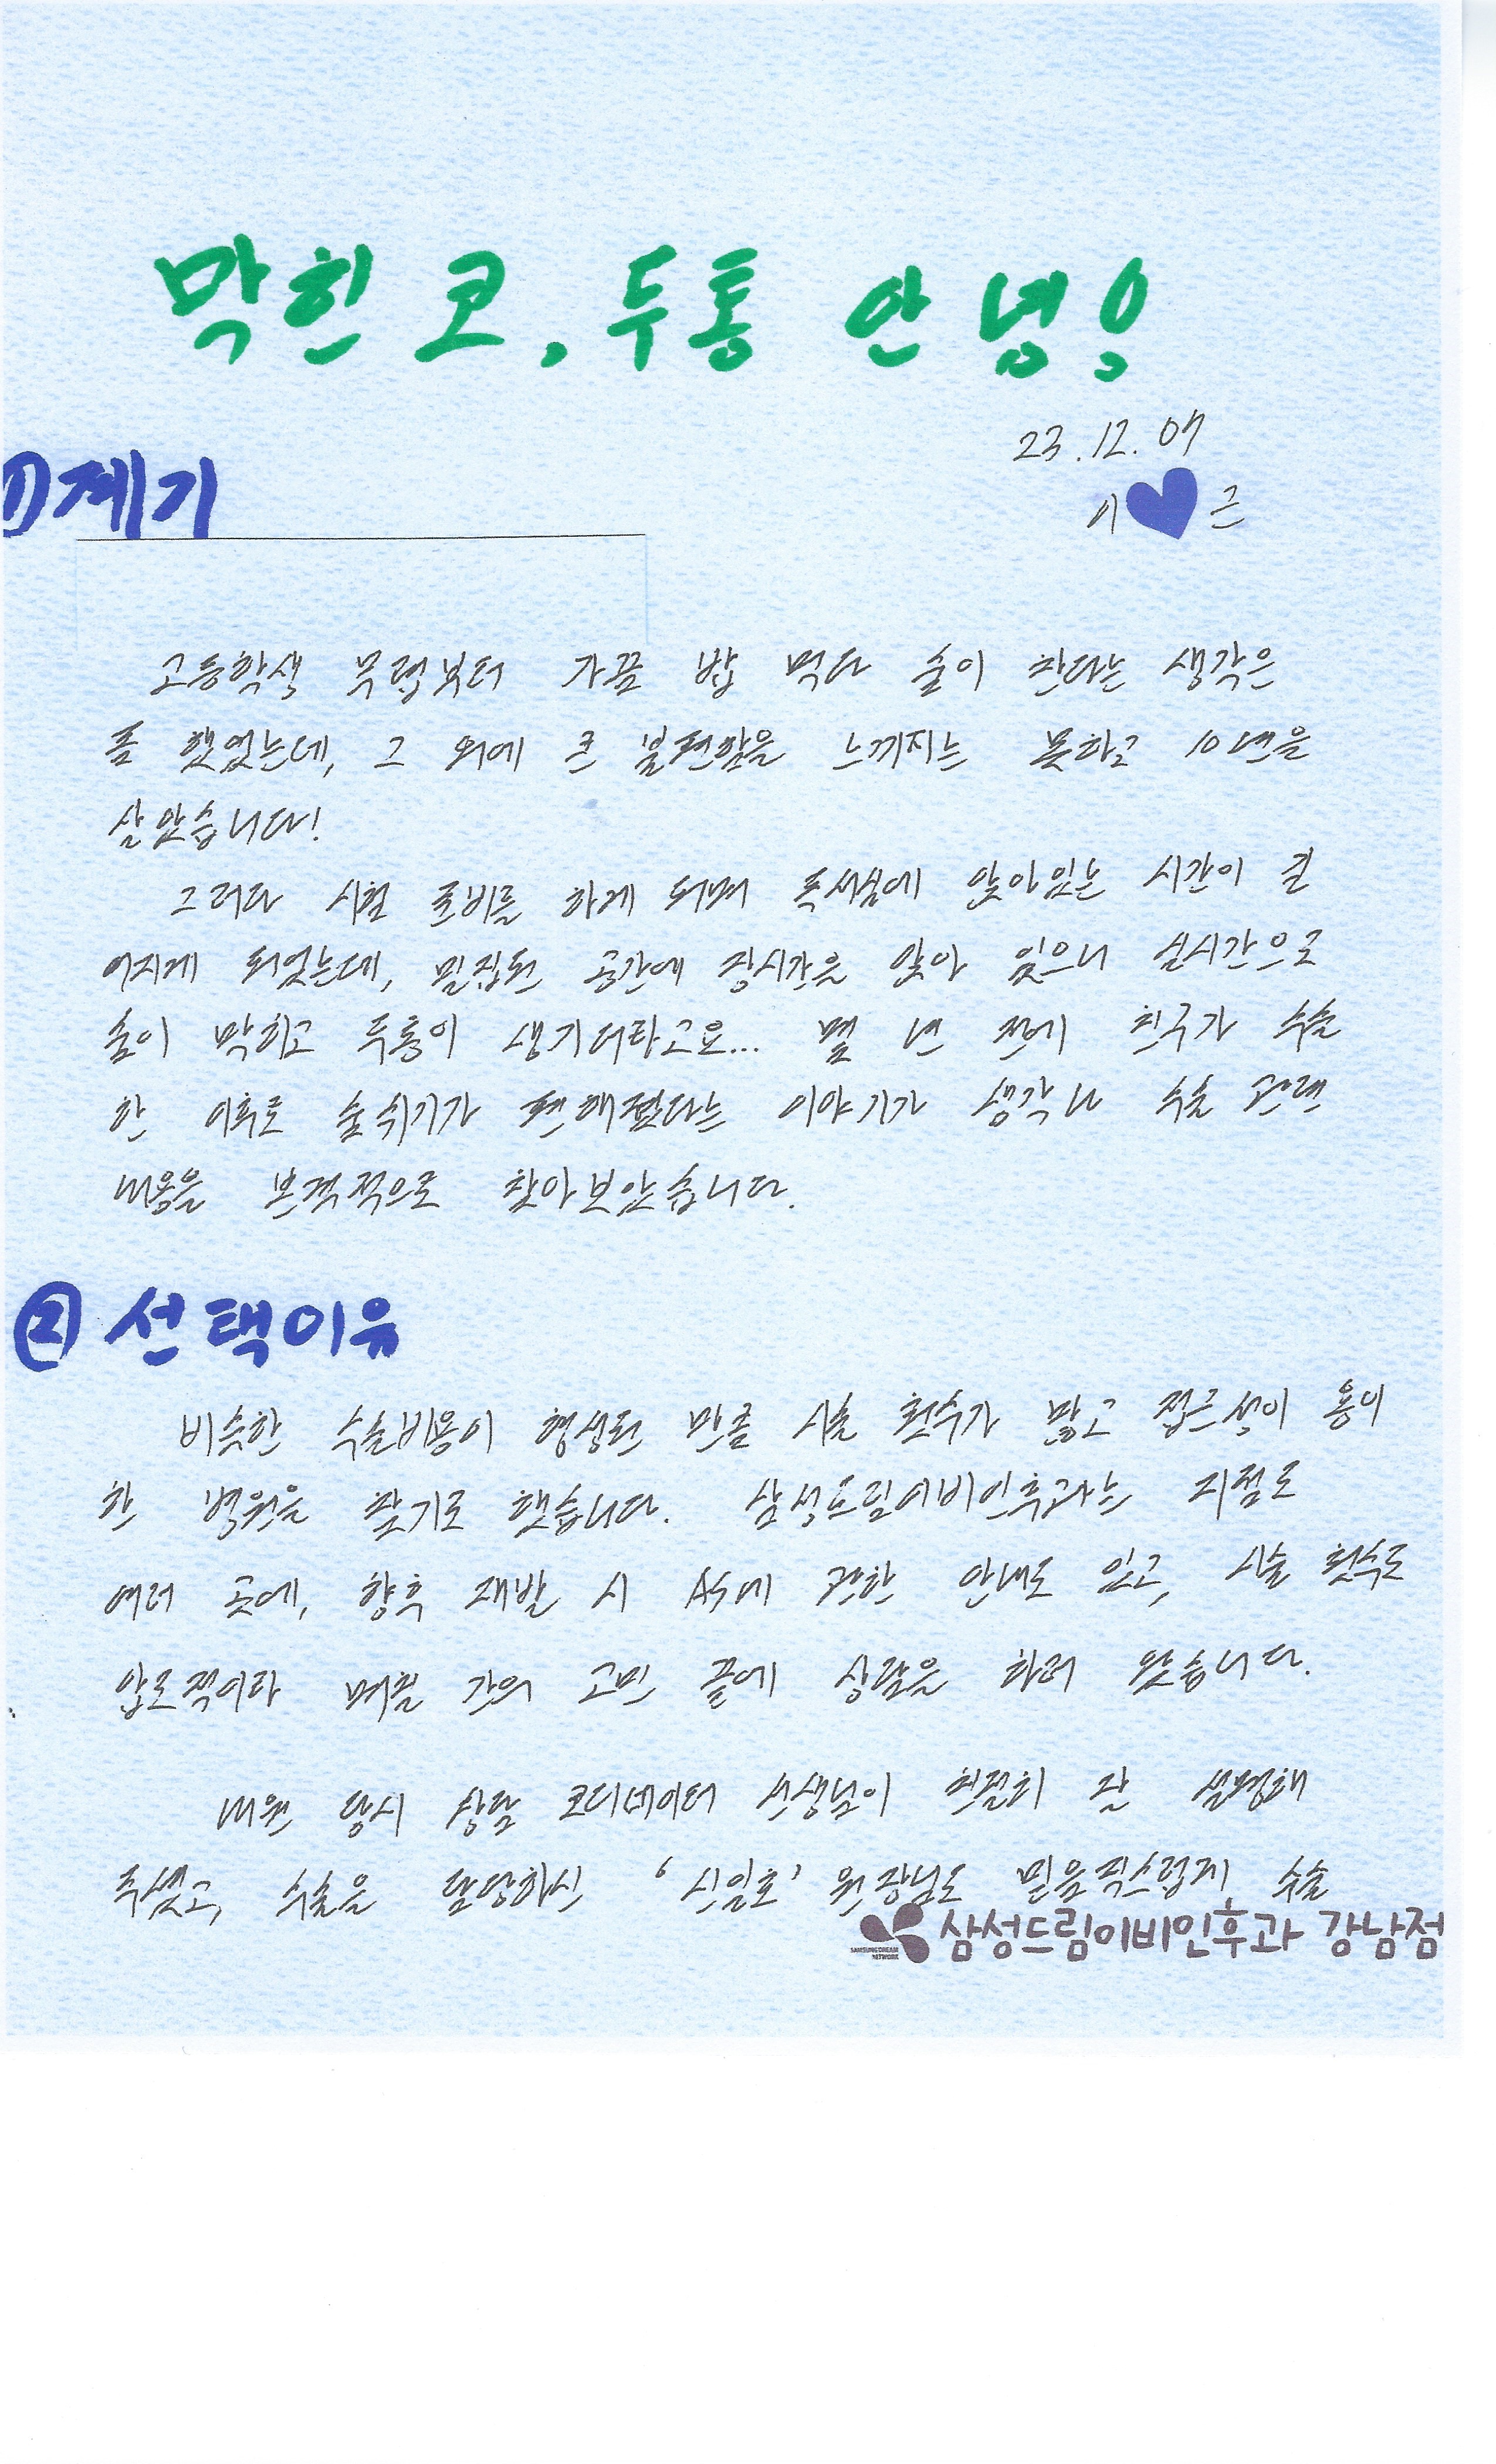 막힌 코, 두통 안녕!
23.12.07
이♥근
1) 계기
고등학생 무렵부터 가끔 밥 먹다 숨이 찬다는 생각은
좀 했었는데, 그 외에 큰 불편함을 느끼지는 못하고 10년을
살았습니다!
그러다 시험 준비를 하게 되며 독서실에 앉아있는 시간이 길
어지게 되었는데, 밀집된 공간에 장시간을 앉아 있으니 실시간으로
숨이 막히고 두통이 생기더라고요... 몇 년 전에 친구가 수술
한 이후로 숨쉬기가 편해졌다는 이야기가 생각나 수술 관련
내용을 본격적으로 찾아보았습니다.
② 선택이유
비슷한 수술비용이 형성된 만큼 시술 횟수가 많고 접근성이 용이
한 병원을 찾기로 했습니다. 삼성드림이비인후과는 지점도
여러 곳에, 향후 재발 시 AS에 관한 안내도 있고, 시술 횟수도
압도적이라 며칠 간의 고민 끝에 상담을 하러 왔습니다.
내원 당시 상담 코디네이터 선생님이 친절히 잘 설명해
주셨고, 수술을 담당하신 '신일호' 원장님도 믿음직스럽게 수술
삼성드림이비인후과 강남점
SAMSUNG DREAM
NETWORK